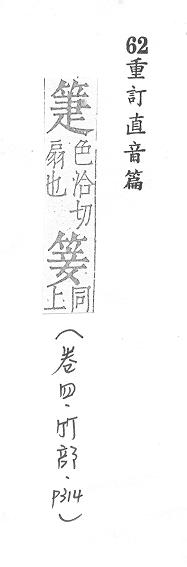 62重訂直音篇
箑
色洽切
扇也
同
上
(卷四·竹部·P314)